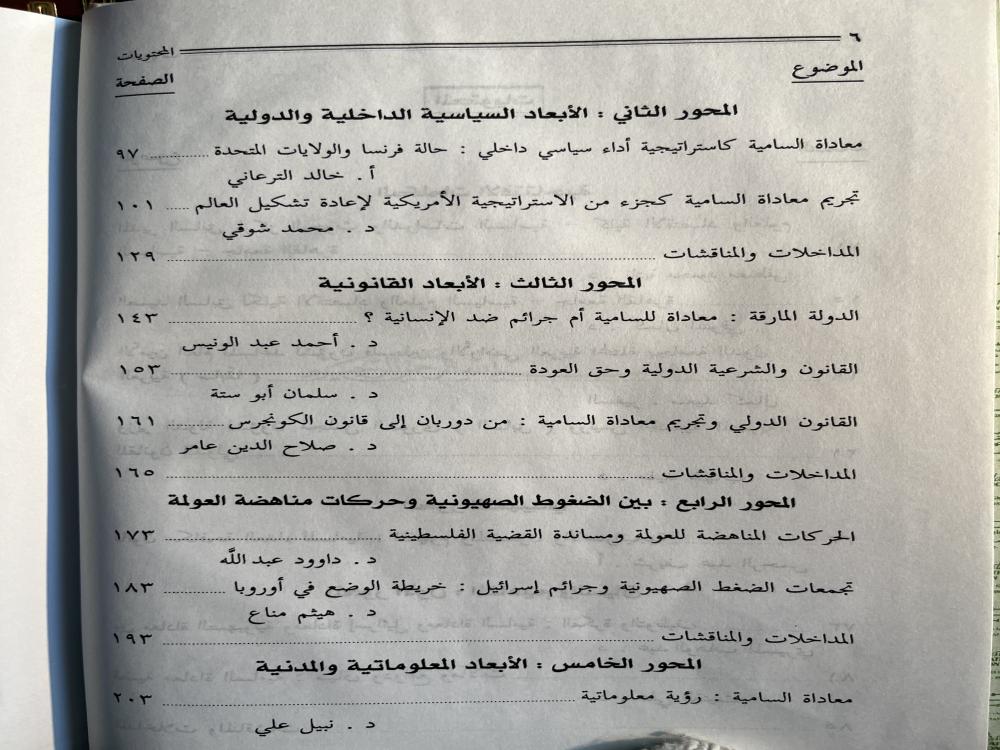 ٦ المحتويات
الموضوع الصفحة
المحور الثاني : الأبعاد السياسية الداخلية والدولية
معاداة السامية كاستراتيجية أداء سياسي داخلي : حالة فرنسا والولايات المتحدة ........... ٩٧
أ . خالد الترعاني
تجريم معاداة السامية كجزء من الاستراتيجية الأمريكية لإعادة تشكيل العالم ..... ١٠١
د . محمد شوقي
المداخلات والمناقشات ........... ١٢٩
المحور الثالث : الأبعاد القانونية
الدولة المارقة : معاداة للسامية أم جرائم ضد الإنسانية ؟ ........... ١٤٣
د . أحمد عبد الونيس
القانون والشرعية الدولية وحق العودة ........... ١٥٣
د . سلمان أبو ستة
القانون الدولي وتجريم معاداة السامية : من دوربان إلى قانون الكونجرس ........ ١٦١
د . صلاح الدين عامر
المداخلات والمناقشات ........... ١٦٥
المحور الرابع : بين الضغوط الصهيونية وحركات مناهضة العولمة
الحركات المناهضة للعولمة ومساندة القضية الفلسطينية ........... ١٧٣
د . داوود عبد اللَّه
تجمعات الضغط الصهيونية وجرائم إسرائيل : خريطة الوضع في أوروبا ........... ١٨٣
د . هيثم مناع
المداخلات والمناقشات ........... ١٩٣
المحور الخامس : الأبعاد المعلوماتية والمدنية
معاداة السامية : رؤية معلوماتية ........... ٢٠٣
د . نبيل علي